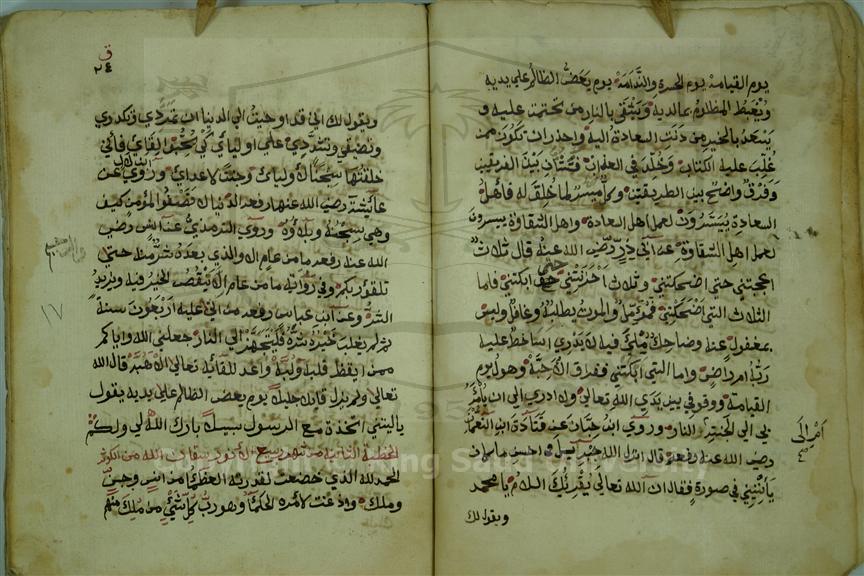 يوم القيامة يوم الحسرة والندامة يوم يعض الظالم على يديه
ويغبط المظلوم بما لديه ويتقي بالنار من تحتمت عليه و
يسعد بالخير من دنت السعادة اليه واحذر ان تكون ممن
غلب عليه الكتاب وخلد في العذاب فشتان بين الفريقين
وفرق واضح بين الطريقين وكل ميسر لما خلق له فأهل
السعادة ييسرون لعمل اهل السعادة واهل الشقاوة ييسرون
لعمل اهل الشقاوة عن ابي ذر رضي الله عنه قال ثلاث
اعجبتني حتى اضحكتني وثلاث احزنتني حتى ابكتني فاما
الثلاث التي اضحكتني فمؤمل والموت يطلبه وغافل وليس
بمغفول عنه وضاحك ملء فيه لا يدري اساخط عليه
ربه ام راض واما التي ابكتني ففراق الاحبة وهول يوم
القيامة ووقوفي بين يدي الله تعالى ولا ادري الى اين يأمر
بي الى الجنة ام الى النار وروي ابن حبان عن قتادة ابن النعمان
رضي الله عنه رفعه قال انزل الله جبريل في احسن ما كان
يأتيني في صورة فقال ان الله تعالى يقرئك السلام يا محمد
ويقول لك
ق
٢٤
ويقول لك اني قد اوحيت الى الدنيا ان تمردي وتكدري
وتضيقي وتشددي على اوليائي كي يحبوا لقائي فاني
خلقتها سجنا لأوليائي وجنة لاعدائي وروي عن
عائشة رضي الله عنها رفعه الدنيا لا تصفو لمؤمن كيف
وهي سجنه وبلاؤه وروي الترمذي عن انس رضي
الله عنه رفعه ما من عام الا والذي بعده شر منه حتى
تلقوا ربكم وفي رواية ما من عام الا ينقص الخير فيه ويزيد
الشر وعن ابن عباس رفعه من اتى عليه اربعون سنة
ثم لم يغلب خيره شره فليتجهز الى النار جعلني الله واياكم
ممن ايقظ قلبه ولبه واعد للقائه تعالى الأهبة قال الله
تعالى ولم يزل قائلا جليلا يوم يعض الظالم على يديه يقول
ياليتني اتخذت مع الرسول سبيلا بارك الله لي ولكم
الخطبة الثانية من شهر ربيع
الحمد لله الذي خضعت لقدرته العظماء من انس وجن
وملك واذعنت لامره الحكماء وهو رب كل شيء من ملك منهم
١٧